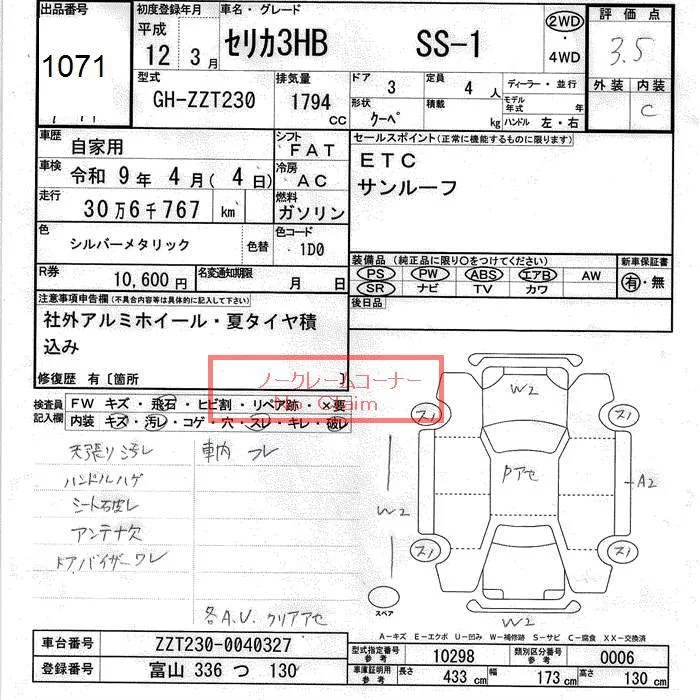 出品番号
1071
初度登録年月
平成
12年3月
車名・グレード
セリカ3HB SS-1
2WD
・
4WD
評価点
3.5
外装 内装
C
型式
GH-ZZT230
排気量
1794
CC
ドア 3
定員 4 人
形状 クーペ
積載 kg
ディーラー・並行
モデル年式 年
ハンドル 左・右
車歴 自家用
シフト FAT
車検 令和 9年 4月(4日)
冷房 AC
走行 30万6千767 km
燃料 ガソリン
色 シルバーメタリック 色替
色コード 1D0
R券 10,600円
名変通知期限 月 日
セールスポイント(正常に機能するものに限ります)
ETC
サンルーフ
装備品(純正品に限り○をつけてください)
PS PW ABS エアB AW
SR ナビ TV カワ
新車保証書
有・無
後日品
注意事項申告欄(不具合内容等は具体的に記入して下さい)
社外アルミホイール・夏タイヤ積
込み
修復歴 有〔箇所 〕
ノークレームコーナー
No Claim
検査員記入欄
FW キズ・飛石・ヒビ割・リペア跡・×要
内装・キズ・汚レ・コゲ・穴・スレ・キレ・破レ
天張り汚レ
ハンドルハゲ
シート破レ
アンテナ欠
ドアバイザーワレ
車内 フレ
各A.U. クリアアセ
W2
ス1
ス1
Pアセ
A2
W2
ス1
ス1
スペア
W2
A-キズ E-エクボ U-凹み W-補修跡 S-サビ C-腐食 XX-交換済
車台番号 ZZT230-0040327
登録番号 富山 336 つ 130
型式指定番号 参考 10298
類別区分番号 参考 0006
車庫証明用 参考 長さ 433 cm 幅 173 cm 高さ 130 cm